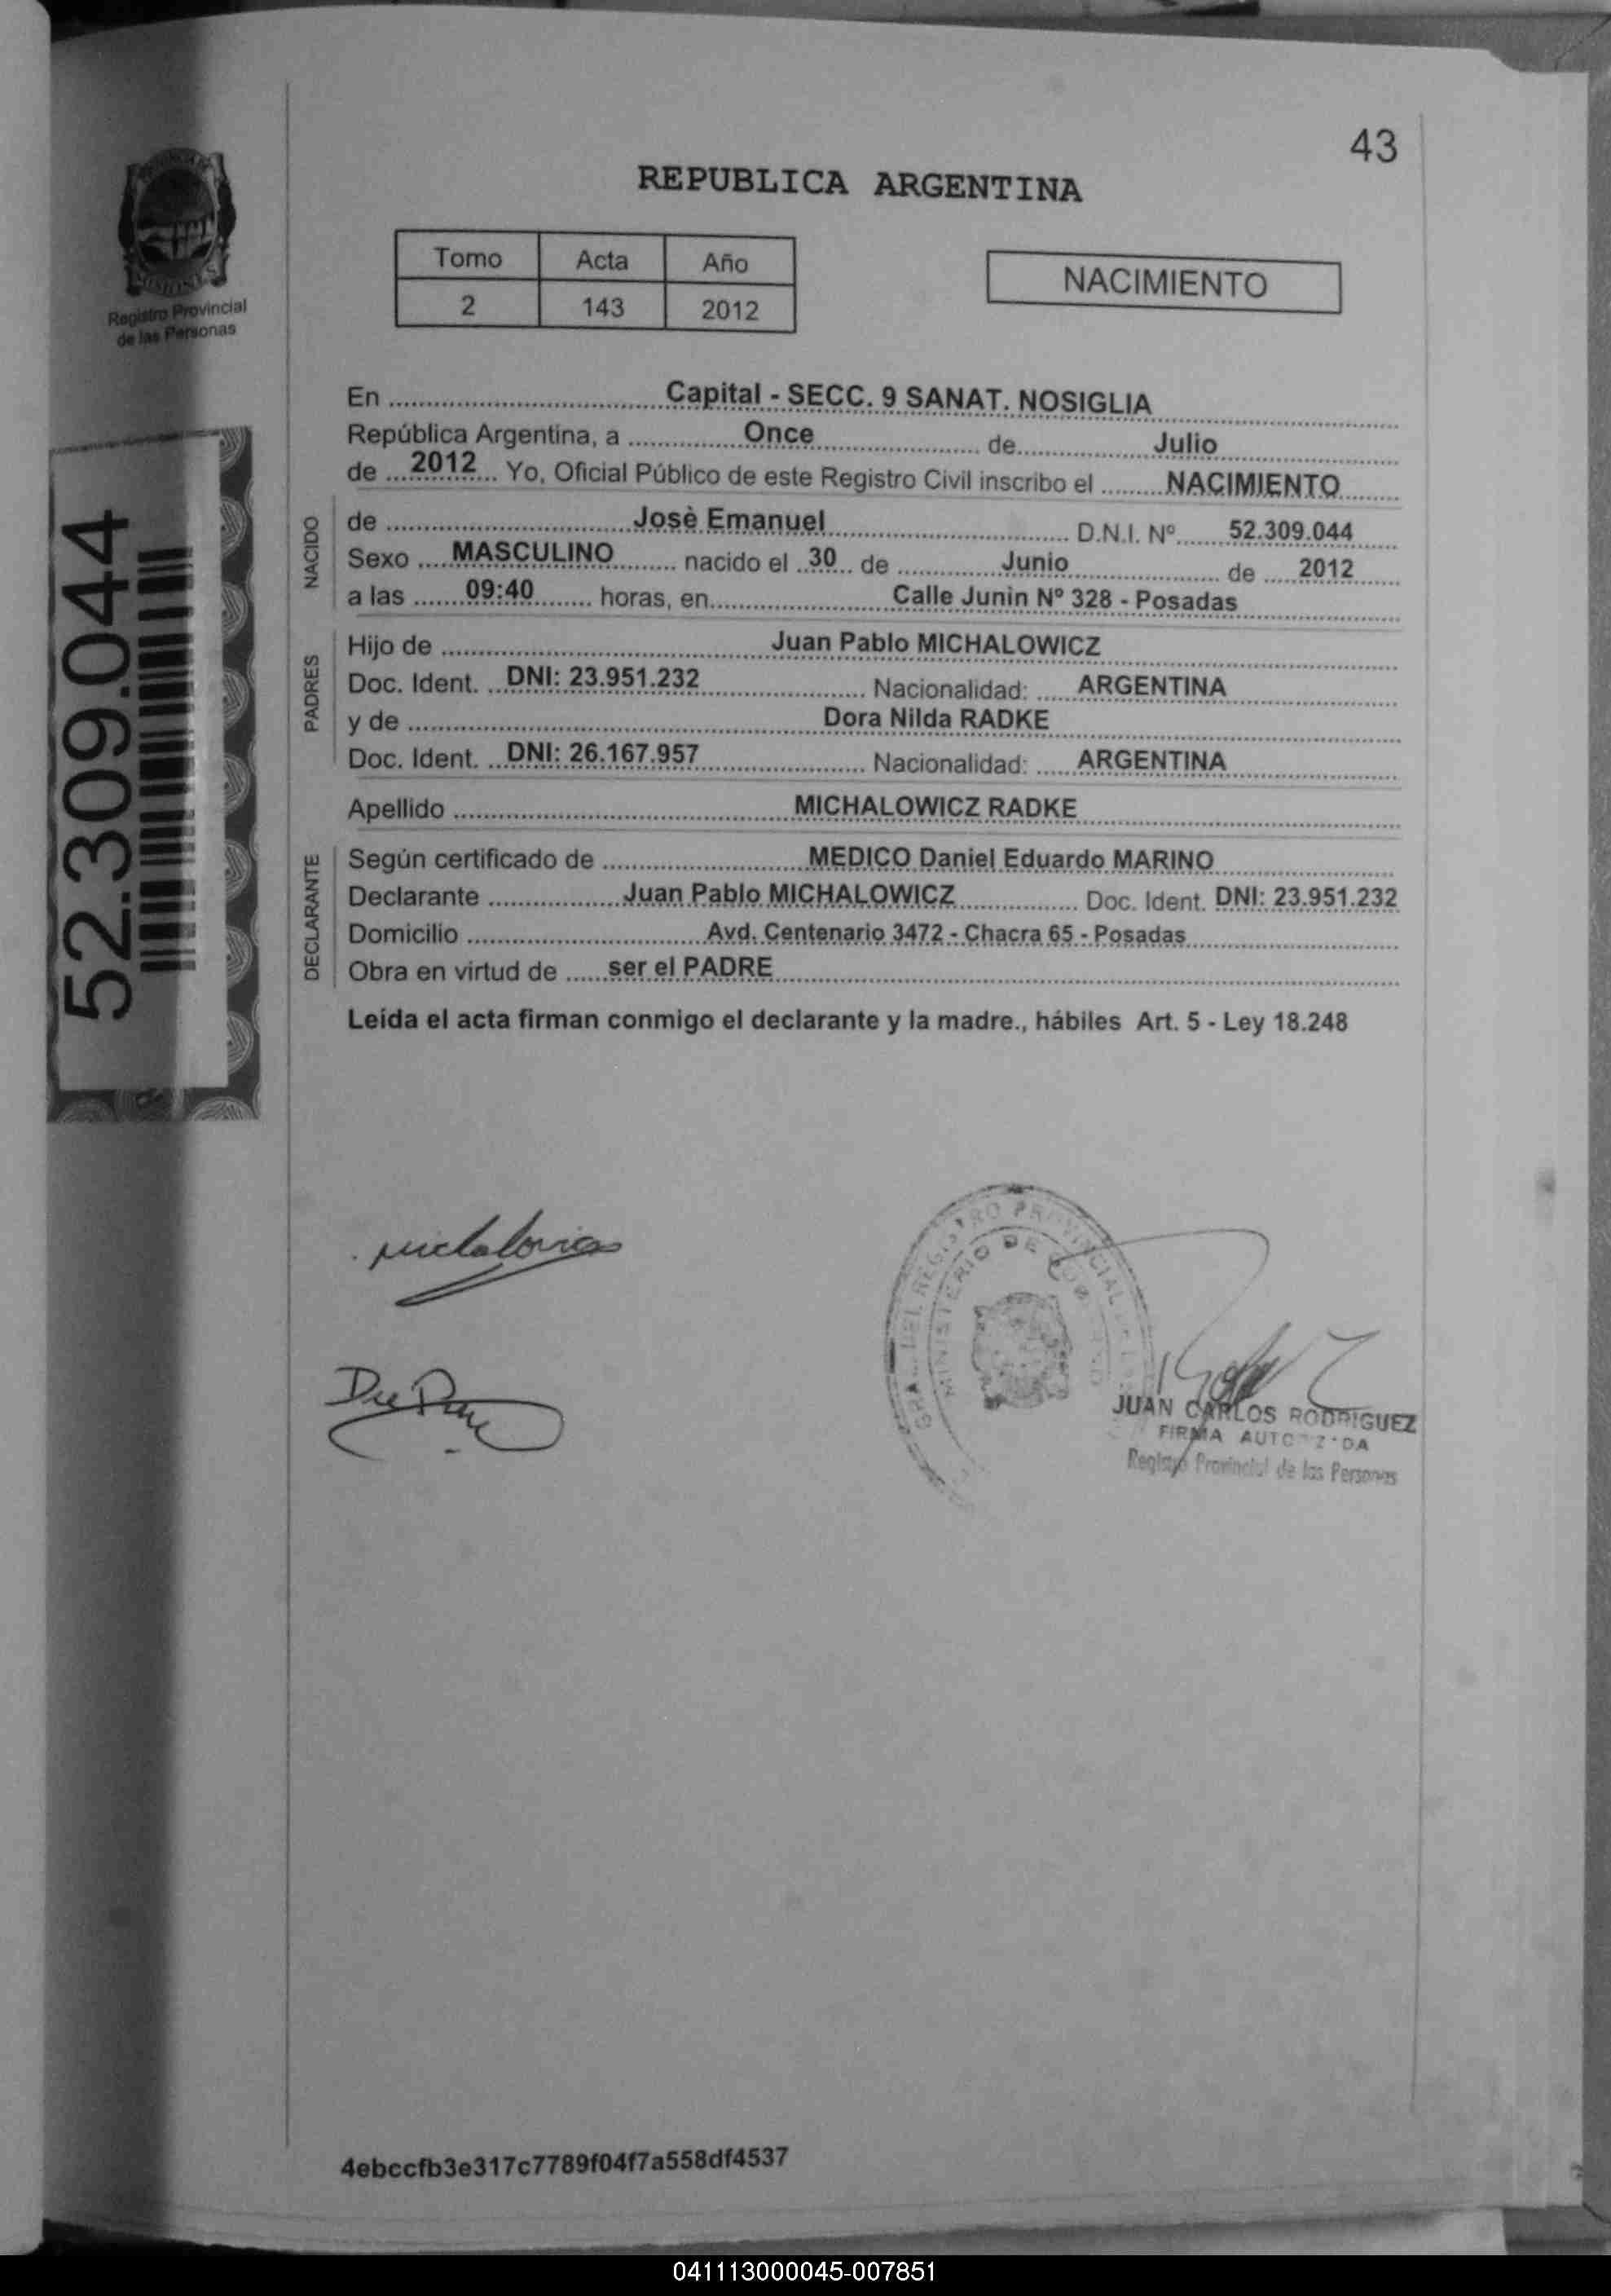 43
REPUBLICA ARGENTINA
Registro Provincial
de las Personas
Tomo Acta Año
2 143 2012
NACIMIENTO
52.309.044
En Capital - SECC. 9 SANAT. NOSIGLIA
República Argentina, a Once de Julio
de 2012 Yo, Oficial Público de este Registro Civil inscribo el NACIMIENTO
NACIDO
de Josè Emanuel D.N.I. Nº 52.309.044
Sexo MASCULINO nacido el 30 de Junio de 2012
a las 09:40 horas, en Calle Junin Nº 328 - Posadas
PADRES
Hijo de Juan Pablo MICHALOWICZ
Doc. Ident. DNI: 23.951.232 Nacionalidad: ARGENTINA
y de Dora Nilda RADKE
Doc. Ident. DNI: 26.167.957 Nacionalidad: ARGENTINA
Apellido MICHALOWICZ RADKE
DECLARANTE
Según certificado de MEDICO Daniel Eduardo MARINO
Declarante Juan Pablo MICHALOWICZ Doc. Ident. DNI: 23.951.232
Domicilio Avd. Centenario 3472 - Chacra 65 - Posadas
Obra en virtud de ser el PADRE
Leída el acta firman conmigo el declarante y la madre., hábiles Art. 5 - Ley 18.248
DEL REGISTRO PROVINCIAL
MINISTERIO DE
JUAN CARLOS RODRIGUEZ
FIRMA AUTORIZADA
Registro Provincial de las Personas
4ebccfb3e317c7789f04f7a558df4537
041113000045-007851